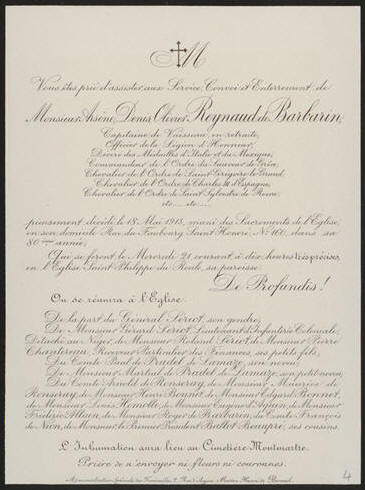 M
Vous êtes prié d'assister aux Service, Convoi et Enterrement de
Monsieur Arsène, Denis, Olivier Reynaud de Barbarin,
Capitaine de Vaisseau en retraite,
Officier de la Légion d'Honneur,
Décoré des Médailles d'Italie et du Mexique,
Commandeur de l'Ordre du Sauveur de Grèce,
Chevalier de l'Ordre de Saint Grégoire le Grand,
Chevalier de l'Ordre de Charles III d'Espagne,
Chevalier de l'Ordre de Saint Sylvestre de Rome,
etc... etc...,
pieusement décédé le 18 Mai 1913, muni des Sacrements de l'Eglise,
en son domicile Rue du Faubourg Saint Honoré, No 160, dans sa
80ème année;
Qui se feront le Mercredi 21 courant, à dix heures très précises,
en l'Eglise Saint Philippe du Roule, sa paroisse.
De Profundis!
On se réunira à l'Eglise.
De la part du Général Lériot, son gendre;
De Monsieur Gérard Lériot, Lieutenant d'Infanterie Coloniale,
Détaché au Niger, de Monsieur Roland Lériot, de Monsieur Pierre
Chantereau, Receveur Particulier des Finances, ses petits fils;
Du Comte Paul de Pradel de Lamaze, son neveu;
De Monsieur Martial de Pradel de Lamaze, son petit neveu;
Du Comte Arnold de Ronseray, de Monsieur Maurice de
Ronseray, de Monsieur Henri de Monsieur Edgard Bonnet,
de Monsieur Louis Homolle, de Monsieur Eugène d', de Monsieur
Frédéric Allain, de Monsieur Roger de Barbarin, du Comte François
de Nion, de Monsieur le Premier Président Ballot Beaupré, ses cousins.
L'Inhumation aura lieu au Cimetière Montmartre.
Prière de n'envoyer ni fleurs ni couronnes.
4